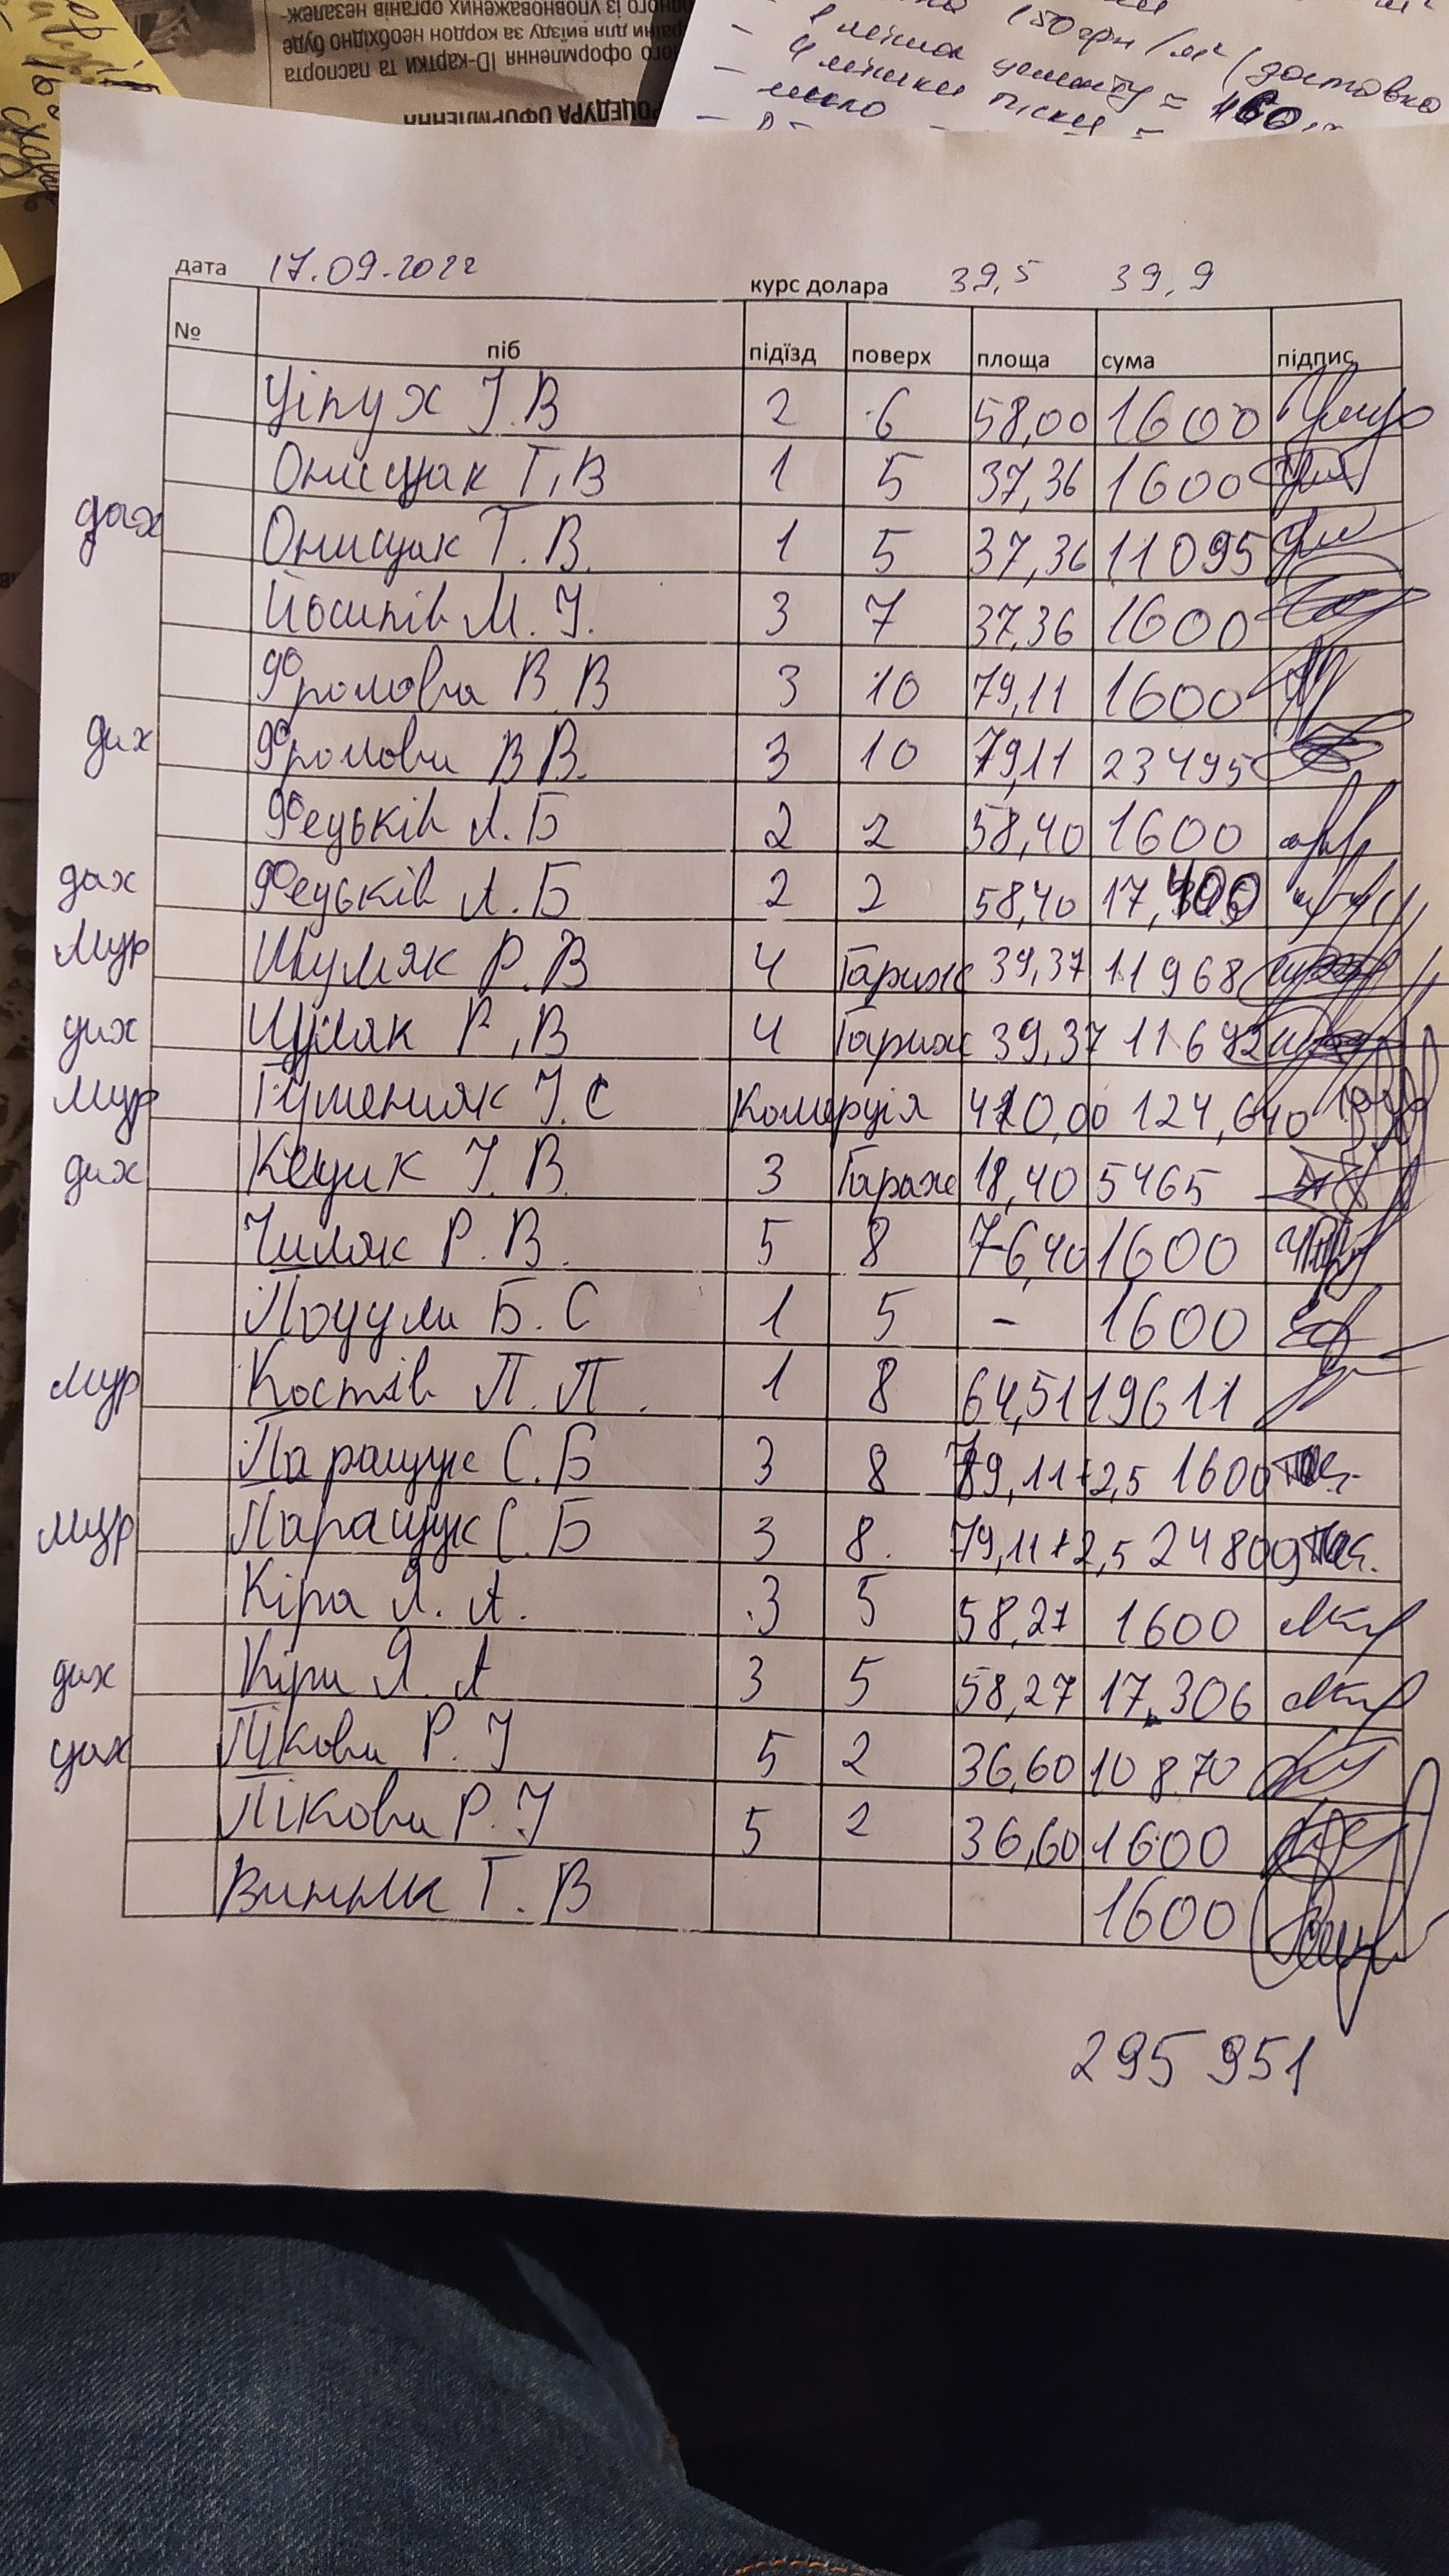 ного із уповноважених органів незалеж-
раїни для виїзду за кордон необхідно буде
ого оформлення ID-картки та паспорта
РОЦЕДУРА ОФОРМЛЕННЯ
150грн/м² (доставка
- 1 мішок цементу = 160
- 4 мішки піски =
дата 17.09.2022 курс долара 39,5 39,9
№ піб підїзд поверх площа сума підпис
Ціпух І.В 2 6 58,00 1600
Онищак Т.В 1 5 37,36 1600
дах Онищак Т.В. 1 5 37,36 11095
Йосипів М.І. 3 7 37,36 1600
Фролова В.В 3 10 79,11 1600
дах Фролова В.В. 3 10 79,11 23495
Федьків Л.Б 2 2 58,40 1600
дах Федьків Л.Б 2 2 58,40 17,400
Мур Шумяк Р.В 4 Гараж 39,37 11968
дах Р.В 4 Гараж 39,37 11692
Мур Гуменяк І.С Комерція 410,00 124,640
дах Кецик І.В. 3 Гараж 18,40 5465
Чиляк Р.В. 5 8 76,40 1600
Поцули Б.С 1 5 - 1600
мур Костів П.П. 1 8 64,51 19611
Паращук С.Б 3 8 79,11+2,5 1600
мур Паращук С.Б 3 8. 79,11+2,5 24809
Кіра Я.А. 3 5 58,27 1600
дах Кіра Я.А 3 5 58,27 17,306
дах Пікова Р.І 5 2 36,60 10870
Пікова Р.І 5 2 36,60 1600
Винник Т.В 1600
295951